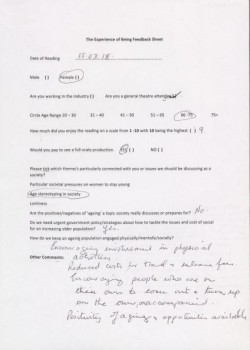 The Experience of Being Feedback Sheet
Date of Reading 15.07.18.
Male ( ) Female ( )
Are you working in the industry ( ) Are you a general theatre attending ( )
Circle Age Range 20 - 30 31 - 40 41 - 50 51 - 65 66-75 75+
How much did you enjoy the reading on a scale from 1 -10 with 10 being the highest ( ) 9
Would you pay to see a full scale production YES ( ) NO ( )
Please tick which theme's particularly connected with you or issues we should be discussing as a
society?
Particular societal pressures on women to stay young
Age stereotyping in society
Loneliness
Are the positives/negatives of "ageing" a topic society really discusses or prepares for? No.
Do we need urgent government policy/strategies about how to tackle the issues and cost of social
for an increasing older population? Yes.
How do we keep an ageing engaged physically/mentally/socially?
Encouraging involvement in physical
activities
Other Comments: Reduced costs for travel + entrance fees.
Encouraging people who are on
their own to come out + turn up
on their own, unaccompanied.
Positivity of ageing + opportunities available